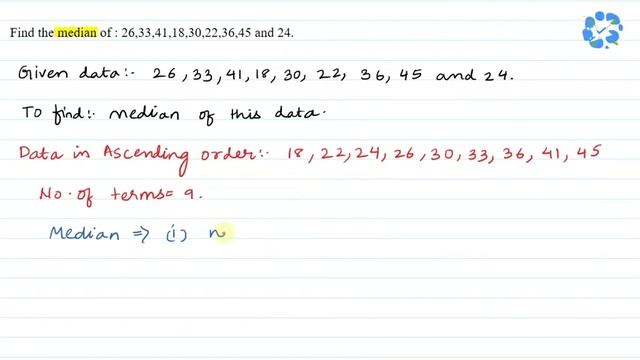 Find the median of : 26,33,41,18,30,22,36,45 and 24.
Given data:- 26, 33, 41, 18, 30, 22, 36, 45 and 24.
To find:- median of this data.
Data in Ascending order:- 18, 22, 24, 26, 30, 33, 36, 41, 45
No. of terms = 9.
Median => (i) n